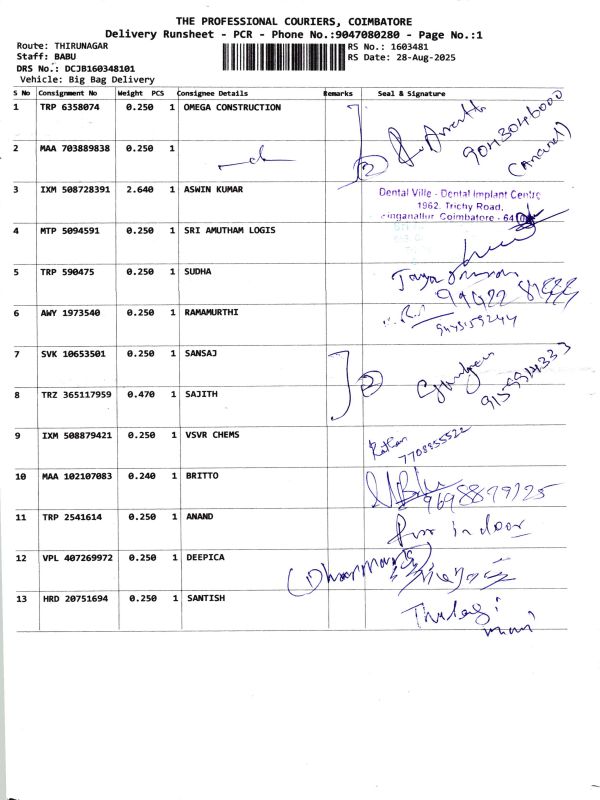 THE PROFESSIONAL COURIERS, COIMBATORE
Delivery Runsheet - PCR - Phone No.:9047080280 - Page No.:1
Route: THIRUNAGAR
Staff: BABU
DRS No.: DCJB160348101
Vehicle: Big Bag Delivery
RS No.: 1603481
RS Date: 28-Aug-2025
S No Consignment No Weight PCS Consignee Details Remarks Seal & Signature
1 TRP 6358074 0.250 1 OMEGA CONSTRUCTION
9043046000
(Anand)
2 MAA 703889838 0.250 1
2
3 IXM 508728391 2.640 1 ASWIN KUMAR
Dental Ville - Dental Implant Centre
1962, Trichy Road,
Singanallur Coimbatore - 641
4 MTP 5094591 0.250 1 SRI AMUTHAM LOGIS
5 TRP 590475 0.250 1 SUDHA
6 AWY 1973540 0.250 1 RAMAMURTHI
7 SVK 10653501 0.250 1 SANSAJ
2
8 TRZ 365117959 0.470 1 SAJITH
9 IXM 508879421 0.250 1 VSVR CHEMS
7708955522
10 MAA 102107083 0.240 1 BRITTO
9698879725
11 TRP 2541614 0.250 1 ANAND
in door
12 VPL 407269972 0.250 1 DEEPICA
13 HRD 20751694 0.250 1 SANTISH